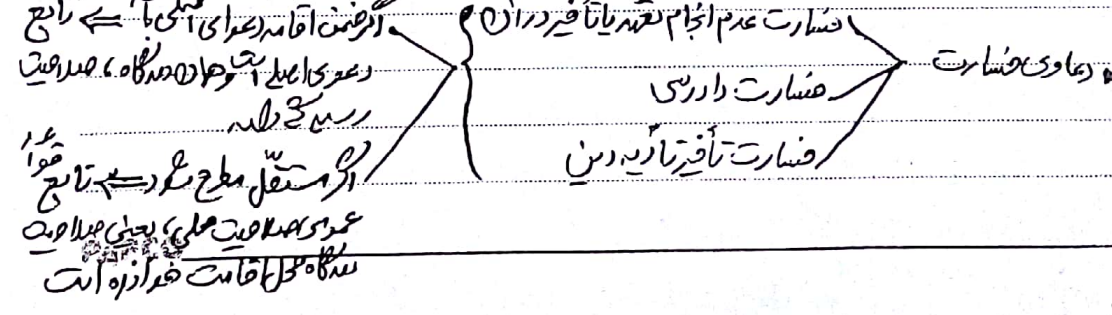 دعاوی خسارت
خسارت عدم انجام تعهد یا تأخیر در آن
خسارت دادرسی
خسارت تأخیر تأدیه دین
اگر ضمن اقامه دعوای اصلی باشد ⇐ تابع
دعوی اصلی است و همان دادگاه، صلاحیت
رسیدگی دارد
اگر مستقل مطرح شود ⇐ تابع قواعد
عمومی صلاحیت محلی، یعنی صلاحیت
دادگاه محل اقامت خوانده است